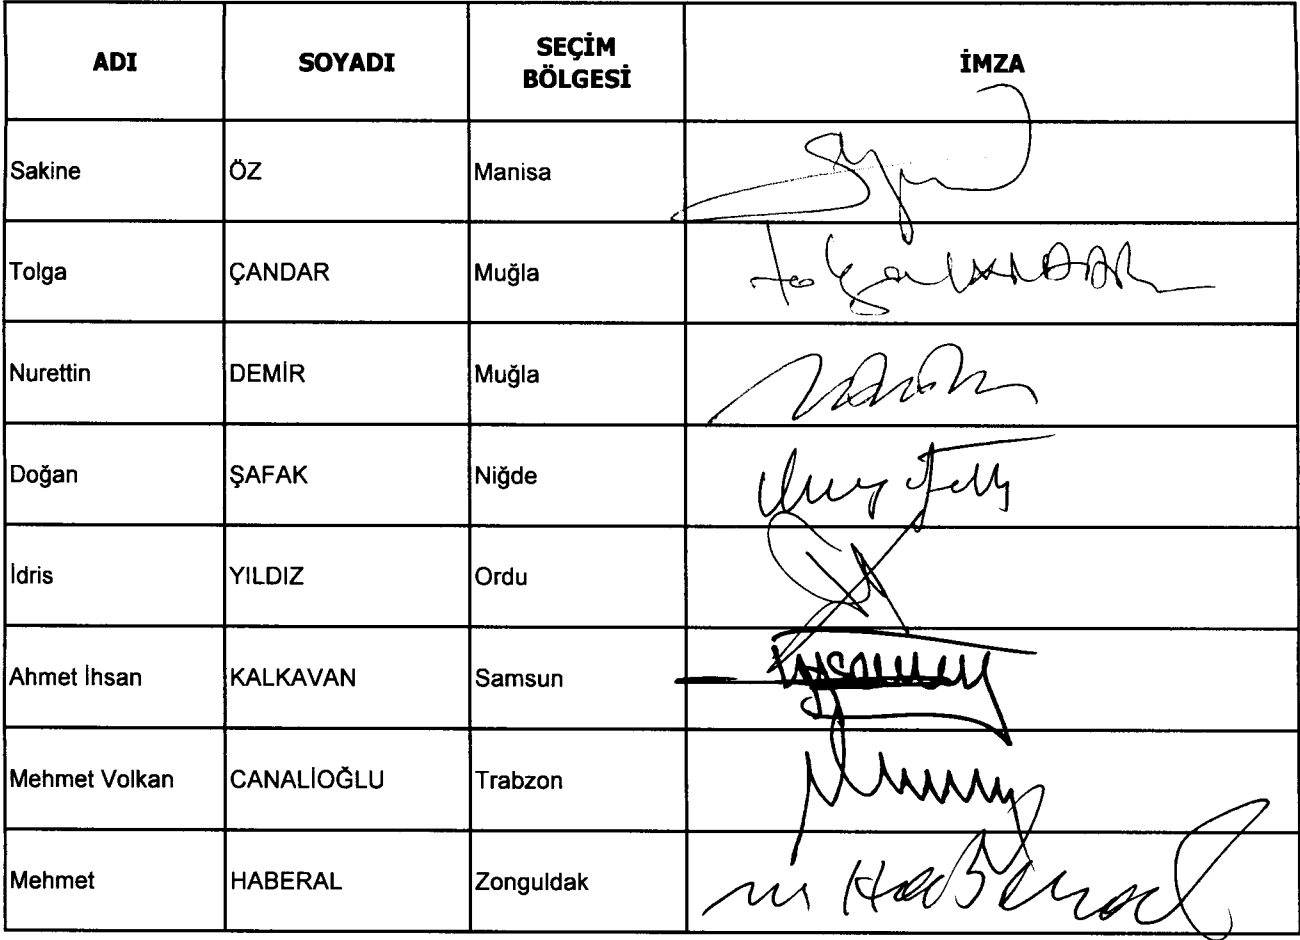 ADI SOYADI SEÇİM BÖLGESİ İMZA
Sakine ÖZ Manisa
Tolga ÇANDAR Muğla
Nurettin DEMİR Muğla
Doğan ŞAFAK Niğde
İdris YILDIZ Ordu
Ahmet İhsan KALKAVAN Samsun
Mehmet Volkan CANALİOĞLU Trabzon
Mehmet HABERAL Zonguldak